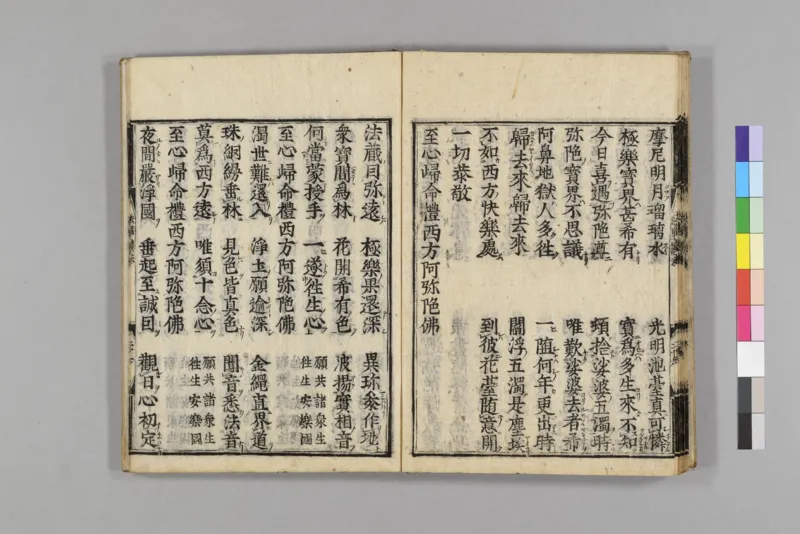 摩尼明月瑠璃水　光明池臺真可憐
極樂寶界甚希有　寶爲多生來不知
今日喜遇弥陁尊　頓捨娑婆五濁時
弥陁寶界不思議　唯歎娑婆去者希
阿鼻地獄人多徃　一墮何年更出時
歸去來歸去來　閻浮五濁是塵埃
不如西方快樂處　到彼花臺随意開
一切恭敬
至心歸命禮西方阿弥陁佛
法藏因弥遠　極樂果還深　異珎叅作地
衆寶間爲林　花開希有色　波揚實相音
何當蒙授手　一遂徃生心　願共諸衆生徃生安樂國
至心歸命禮西方阿弥陁佛
濁世難還入　淨圡願逾深　金繩直界道
珠網縵垂林　見色皆真色　聞音悉法音
莫爲西方遠　唯須十念心　願共諸衆生徃生安樂國
至心歸命禮西方阿弥陁佛
夜間嚴淨國　垂起至誠因　觀日心初定